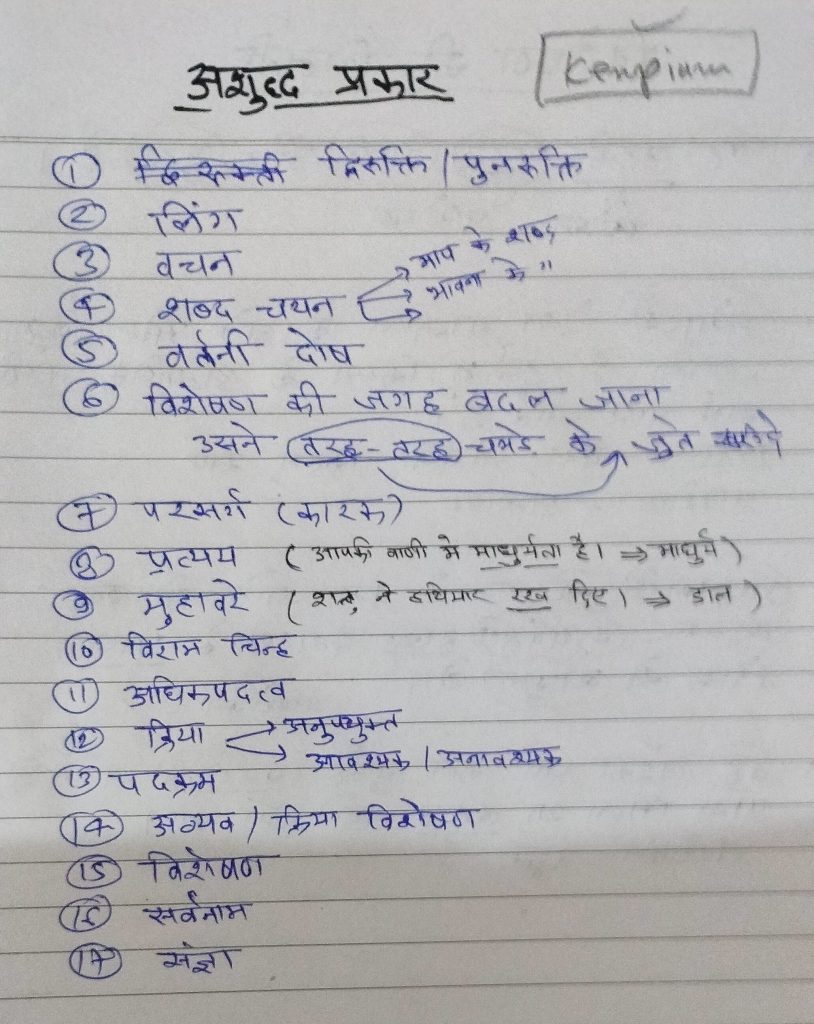 अशुद्द प्रकार
Kempinnm
① द्विरुक्ति / पुनरुक्ति
② लिंग
③ वचन
④ शब्द चयन → माप के शब्द
→ भावना के "
⑤ वर्तनी दोष
⑥ विशेषण की जगह बदल जाना
उसने तरह-तरह चमडे के जुते खरीदे
⑦ परसर्ग (कारक)
⑧ प्रत्यय (आपकी वाणी मे माधुर्यता है। ⇒ माधुर्य)
⑨ मुहावरे (शत्रु ने हथियार रख दिए। ⇒ डाल)
⑩ विराम चिन्ह
⑪ अधिकपदत्व
⑫ क्रिया → अनुपयुक्त
→ आवश्यक / अनावश्यक
⑬ पदक्रम
⑭ अव्यव / क्रिया विशेषण
⑮ विशेषण
⑯ सर्वनाम
⑰ संज्ञा